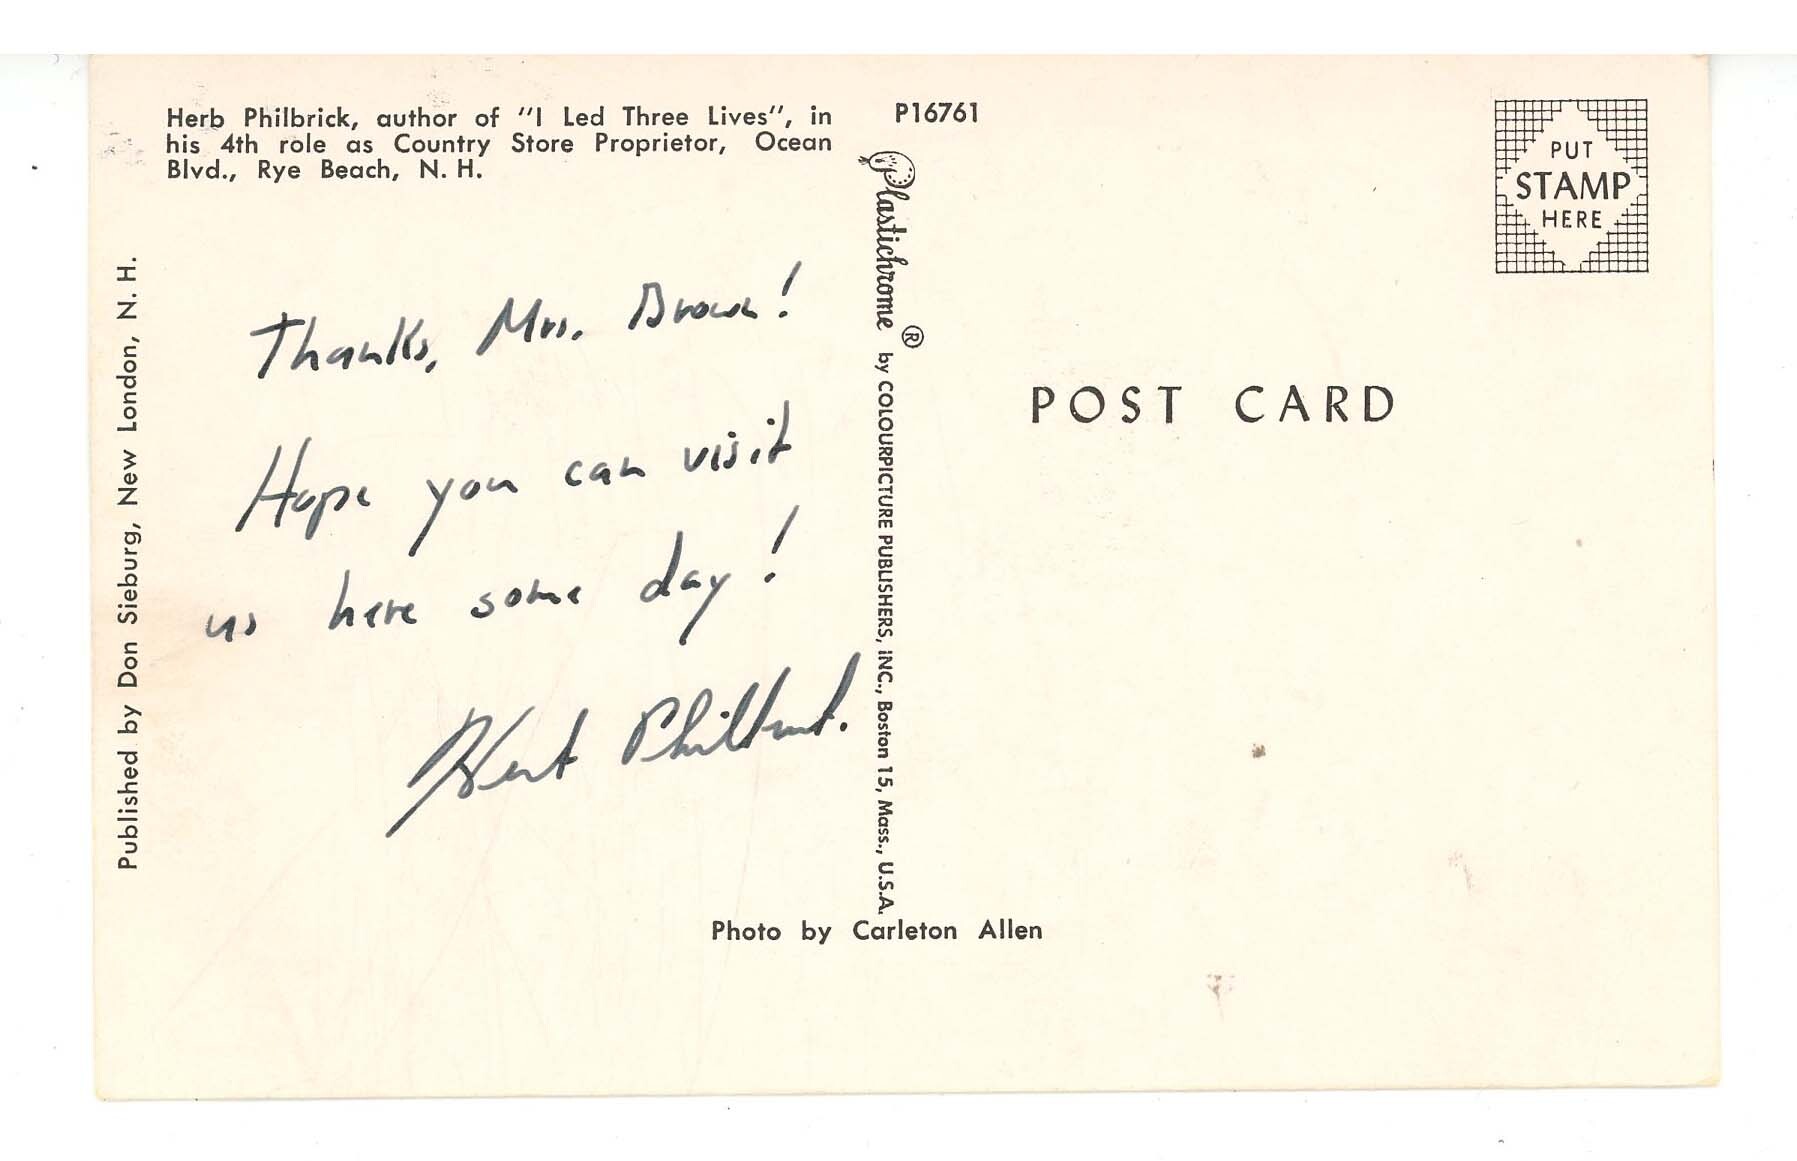 Herb Philbrick, author of "I Led Three Lives", in
his 4th role as Country Store Proprietor, Ocean
Blvd., Rye Beach, N. H.
P16761
PUT
STAMP
HERE
Published by Don Sieburg, New London, N. H.
Thanks, Mrs. Brown!
Hope you can visit
us here some day!
Herb Philbrick.
Plastichrome ® by COLOURPICTURE PUBLISHERS, INC., Boston 15, Mass., U.S.A.
POST CARD
Photo by Carleton Allen